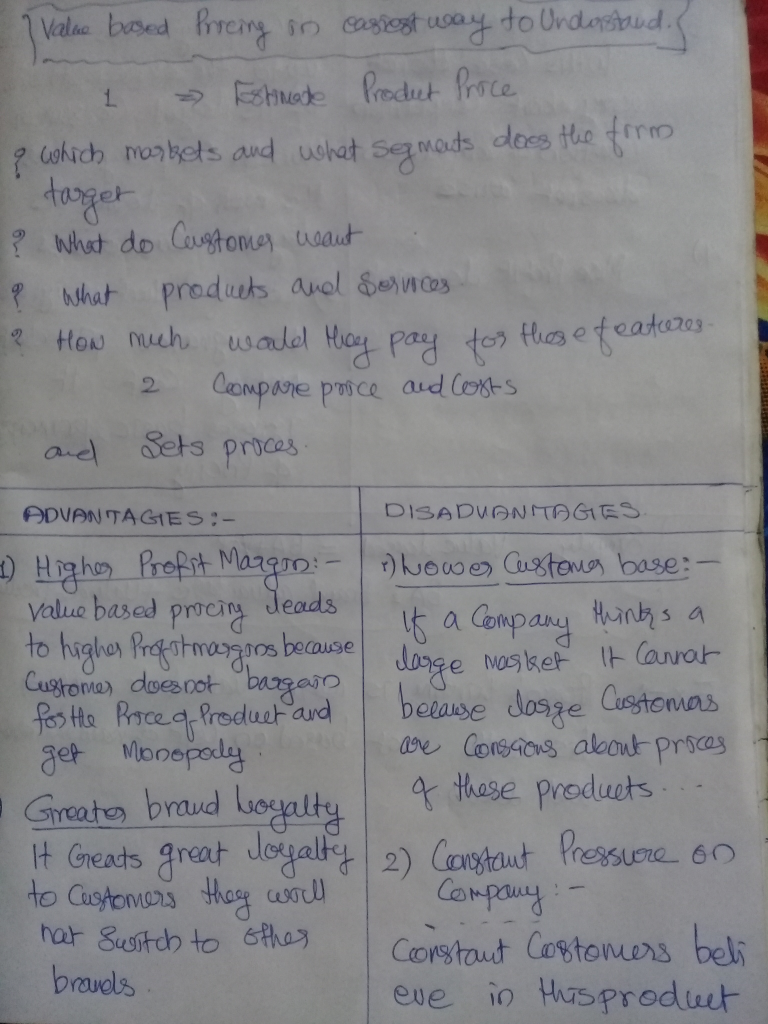 Value based Pricing in easiest way to Understand.
1 ⇒ Estimate Product Price
? which markets and what segments does the firm
target
? What do Customer want
? What products and Services
? How much would they pay for those features.
2 Compare price and Costs
and Sets prices.
ADVANTAGIES:-
1) Higher Profit Margin:-
Value based pricing leads
to higher Profit margins because
Customer does not bargain
for the Price of Product and
get Monopoly.
Greater brand loyalty
It Creats great loyalty
to Customers they will
not Switch to other
brands.
DISADVANTAGIES
1) Lower Customer base:-
If a Company thinks a
large market It Cannat
because large Customers
are Conscious about prices
of these products...
2) Constant Pressure on
Company:-
Constant Costomers beli
eve in this product